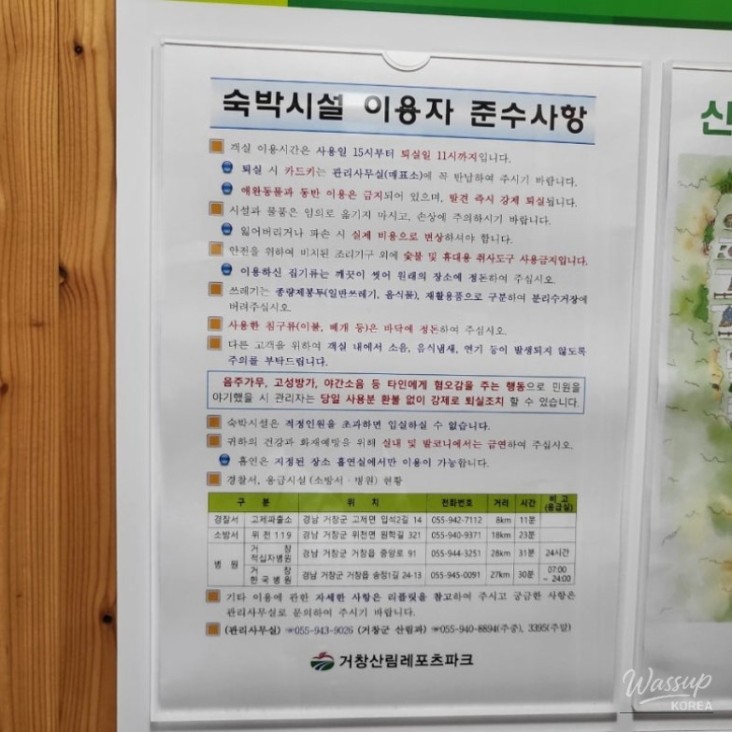 숙박시설 이용자 준수사항
객실 이용시간은 사용일 15시부터 퇴실일 11시까지입니다.
퇴실 시 카드키는 관리사무실(매표소)에 꼭 반납하여 주시기 바랍니다.
애완동물과 동반 이용은 금지되어 있으며, 발견 즉시 강제 퇴실됩니다.
시설과 물품은 임의로 옮기지 마시고, 손상에 주의하시기 바랍니다.
잃어버리거나 파손 시 실제 비용으로 변상하셔야 합니다.
안전을 위하여 비치된 조리기구 외에 숯불 및 휴대용 취사도구 사용금지입니다.
이용하신 집기류는 깨끗이 씻어 원래의 장소에 정돈하여 주십시오.
쓰레기는 종량제봉투(일반쓰레기, 음식물), 재활용품으로 구분하여 분리수거장에
버려주십시오.
사용한 침구류(이불, 베개 등)은 바닥에 정돈하여 주십시오.
다른 고객을 위하여 객실 내에서 소음, 음식냄새, 연기 등이 발생되지 않도록
주의를 부탁드립니다.
음주가무, 고성방가, 야간소음 등 타인에게 혐오감을 주는 행동으로 민원을
야기했을 시 관리자는 당일 사용분 환불 없이 강제로 퇴실조치 할 수 있습니다.
숙박시설은 적정인원을 초과하면 입실하실 수 없습니다.
귀하의 건강과 화재예방을 위해 실내 및 발코니에서는 금연하여 주십시오.
흡연은 지정된 장소 흡연실에서만 이용이 가능합니다.
경찰서, 응급시설(소방서·병원) 현황
구 분 위 치 전화번호 거리 시간 비 고 (응급실)
경찰서 고제파출소 경남 거창군 고제면 입석2길 14 055-942-7112 8km 11분
소방서 위천119 경남 거창군 위천면 원학길 321 055-940-9371 18km 23분
병 원 거 창 적십자병원 경남 거창군 거창읍 중앙로 91 055-944-3251 28km 31분 24시간
거 창 한국병원 경남 거창군 거창읍 송정1길 24-13 055-945-0091 27km 30분 07:00 ~ 24:00
기타 이용에 관한 자세한 사항은 리플릿을 참고하여 주시고 궁금한 사항은
관리사무실로 문의하여 주시기 바랍니다.
(관리사무실) ☏055-943-9026 (거창군 산림과) ☏055-940-8894(주중), 3395(주말)
거창산림레포츠파크
신
Wassup
KOREA